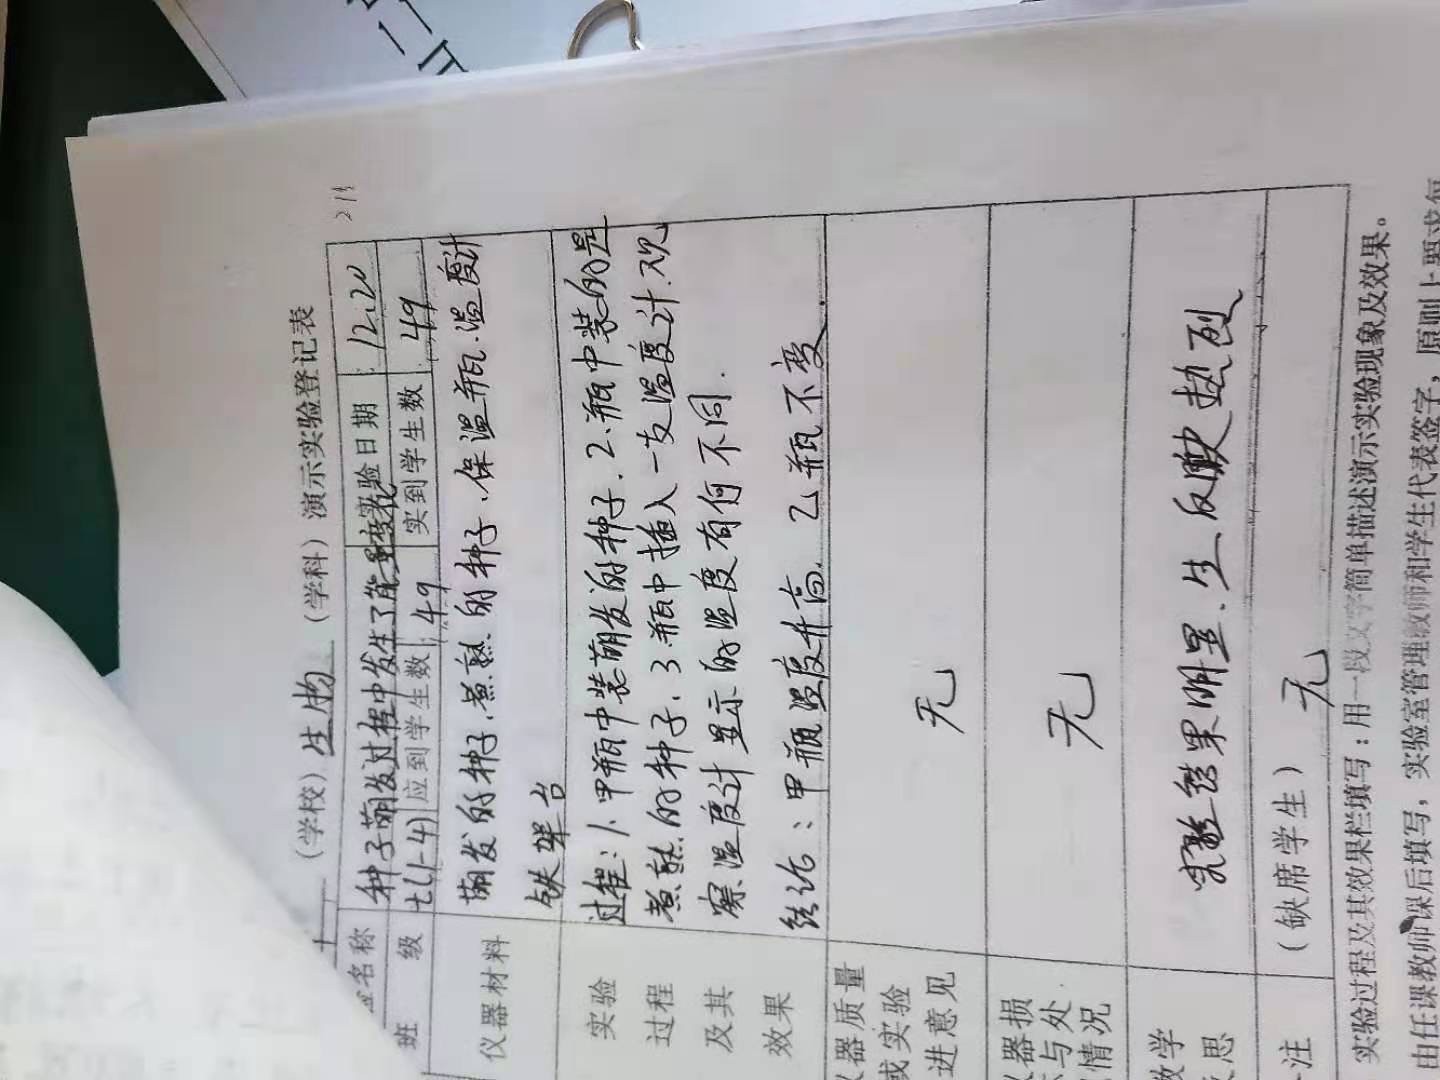 （学校）生物（学科）演示实验登记表
名称 种子萌发过程中发生了能量变化 实验日期 12.20
班 级 七(1-4) 应到学生数 49 实到学生数 49
仪器材料 萌发的种子.煮熟的种子.保温瓶.温度计
铁架台
实验过程及其效果
过程:1.甲瓶中装萌发的种子.2.瓶中装的是
煮熟的种子.3.瓶中插入一支温度计.观
察温度计显示的温度有何不同.
结论:甲瓶温度升高.乙瓶不变
器质量
或实验
进意见
无
器损
与处
情况
无
学
思
实验结果明显.生反映热烈
注
（缺席学生） 无
实验过程及其效果栏填写：用一段文字简单描述演示实验现象及效果。
由任课教师课后填写，实验室管理教师和学生代表签字，原则上要求每